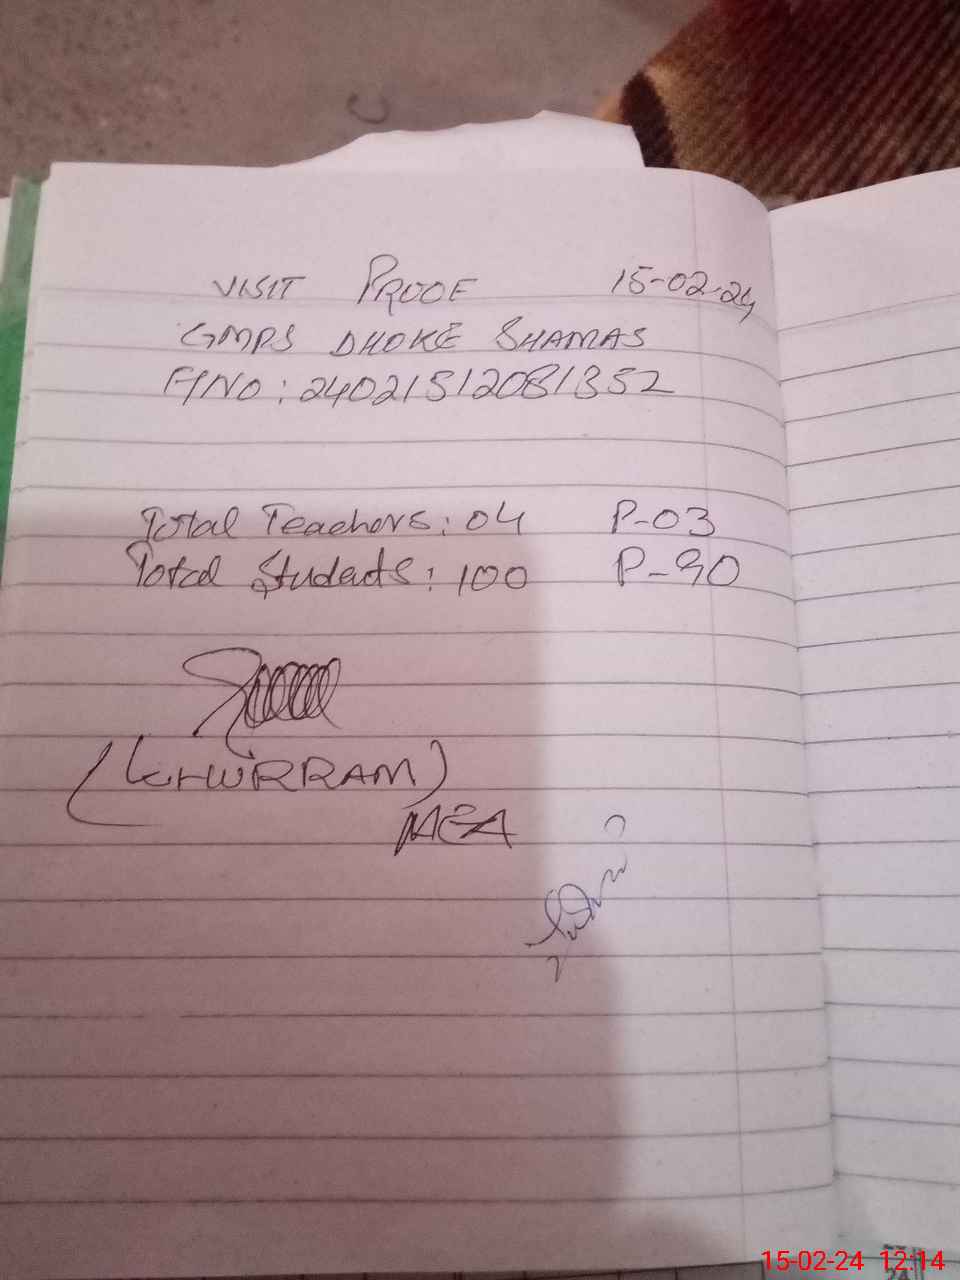 VISIT PROOF 15-02-24
GMPS DHOKE SHAMAS
A/NO: 24021512081352
Total Teachers: 04 P-03
Total Students: 100 P-90
(KHURRAM)
MEA
15-02-24 12:14